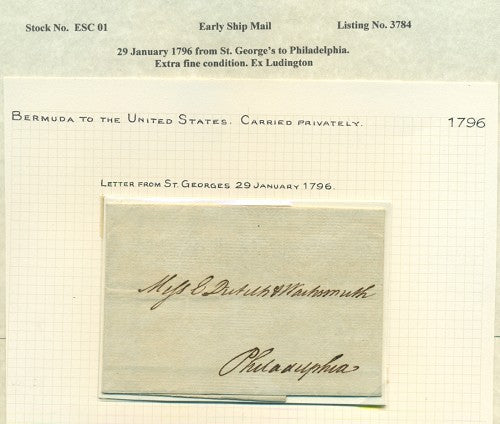 Stock No. ESC 01 Early Ship Mail Listing No. 3784
29 January 1796 from St. George's to Philadelphia.
Extra fine condition. Ex Ludington
BERMUDA TO THE UNITED STATES. CARRIED PRIVATELY. 1796
LETTER FROM ST. GEORGES 29 JANUARY 1796.
Mess E Dutilh & Wachsmuth
Philadelphia